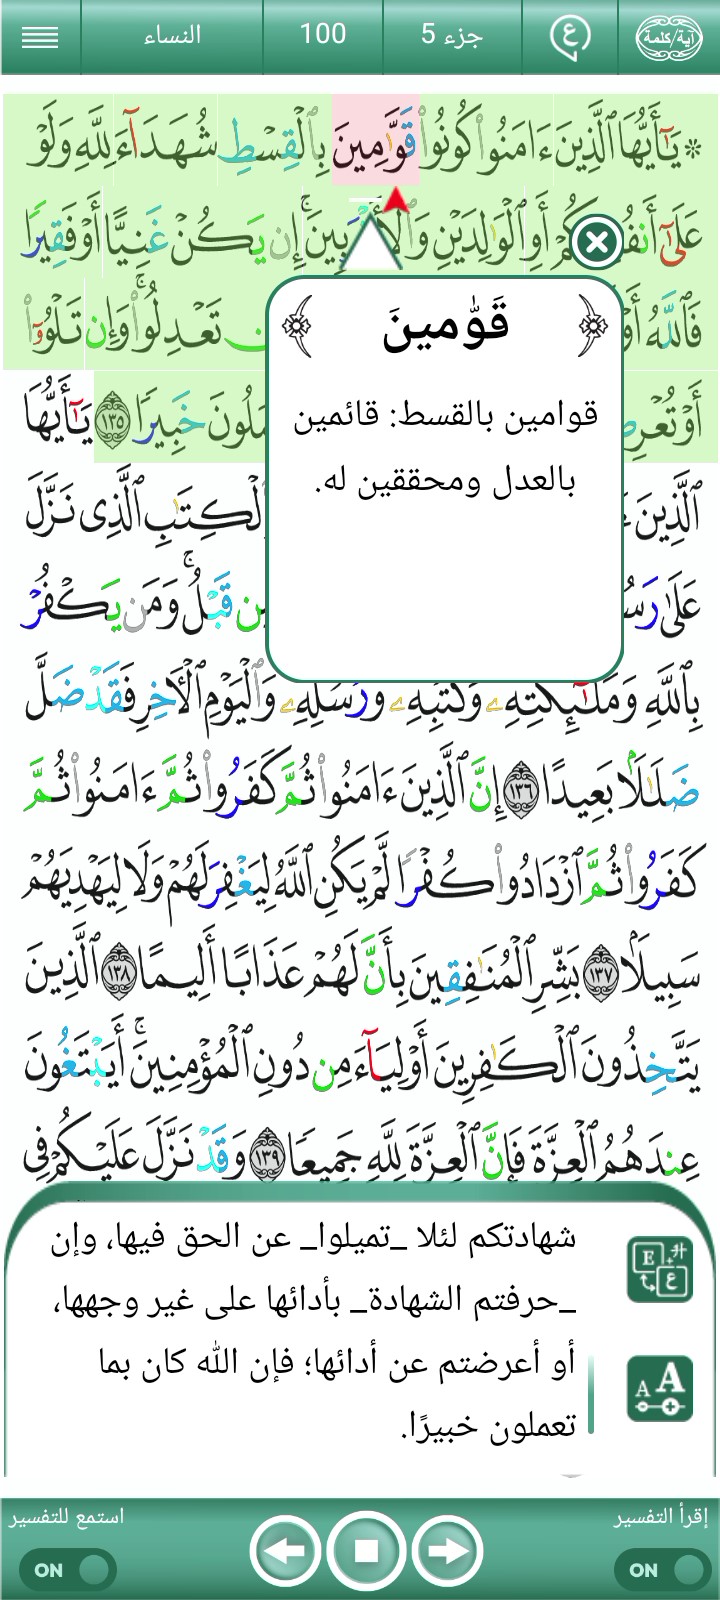 آية/كلمة
ع
جزء 5
100
النساء
۞ يَٰٓأَيُّهَا ٱلَّذِينَ ءَامَنُوا۟ كُونُوا۟ قَوَّٰمِينَ بِٱلْقِسْطِ شُهَدَآءَ لِلَّهِ وَلَوْ
عَلَىٰٓ أَنفُسِكُمْ أَوِ ٱلْوَٰلِدَيْنِ وَٱلْأَقْرَبِينَ ۚ إِن يَكُنْ غَنِيًّا أَوْ فَقِيرًا
فَٱللَّهُ تَعْدِلُوا۟ ۚ وَإِن تَلْوُۥٓا۟
أَوْ تُعْرِضُوا۟ خَبِيرًا ١٣٥ يَٰٓأَيُّهَا
ٱلَّذِينَ ٱلْكِتَٰبِ ٱلَّذِى نَزَّلَ
عَلَىٰ قَبْلُ ۚ وَمَن يَكْفُرْ
قَوَّٰمِينَ
قوامين بالقسط: قائمين
بالعدل ومحققين له.
بِٱللَّهِ وَمَلَٰٓئِكَتِهِۦ وَكُتُبِهِۦ وَرُسُلِهِۦ وَٱلْيَوْمِ ٱلْءَاخِرِ فَقَدْ ضَلَّ
ضَلَٰلًۢا بَعِيدًا ١٣٦ إِنَّ ٱلَّذِينَ ءَامَنُوا۟ ثُمَّ كَفَرُوا۟ ثُمَّ ءَامَنُوا۟ ثُمَّ
كَفَرُوا۟ ثُمَّ ٱزْدَادُوا۟ كُفْرًا لَّمْ يَكُنِ ٱللَّهُ لِيَغْفِرَ لَهُمْ وَلَا لِيَهْدِيَهُمْ
سَبِيلًۢا ١٣٧ بَشِّرِ ٱلْمُنَٰفِقِينَ بِأَنَّ لَهُمْ عَذَابًا أَلِيمًا ١٣٨ ٱلَّذِينَ
يَتَّخِذُونَ ٱلْكَٰفِرِينَ أَوْلِيَآءَ مِن دُونِ ٱلْمُؤْمِنِينَ ۚ أَيَبْتَغُونَ
عِندَهُمُ ٱلْعِزَّةَ فَإِنَّ ٱلْعِزَّةَ لِلَّهِ جَمِيعًا ١٣٩ وَقَدْ نَزَّلَ عَلَيْكُمْ فِى
شهادتكم لئلا _تميلوا_ عن الحق فيها، وإن
_حرفتم الشهادة_ بأدائها على غير وجهها،
أو أعرضتم عن أدائها؛ فإن الله كان بما
تعملون خبيرًا.
إقرأ التفسير
ON
استمع للتفسير
ON